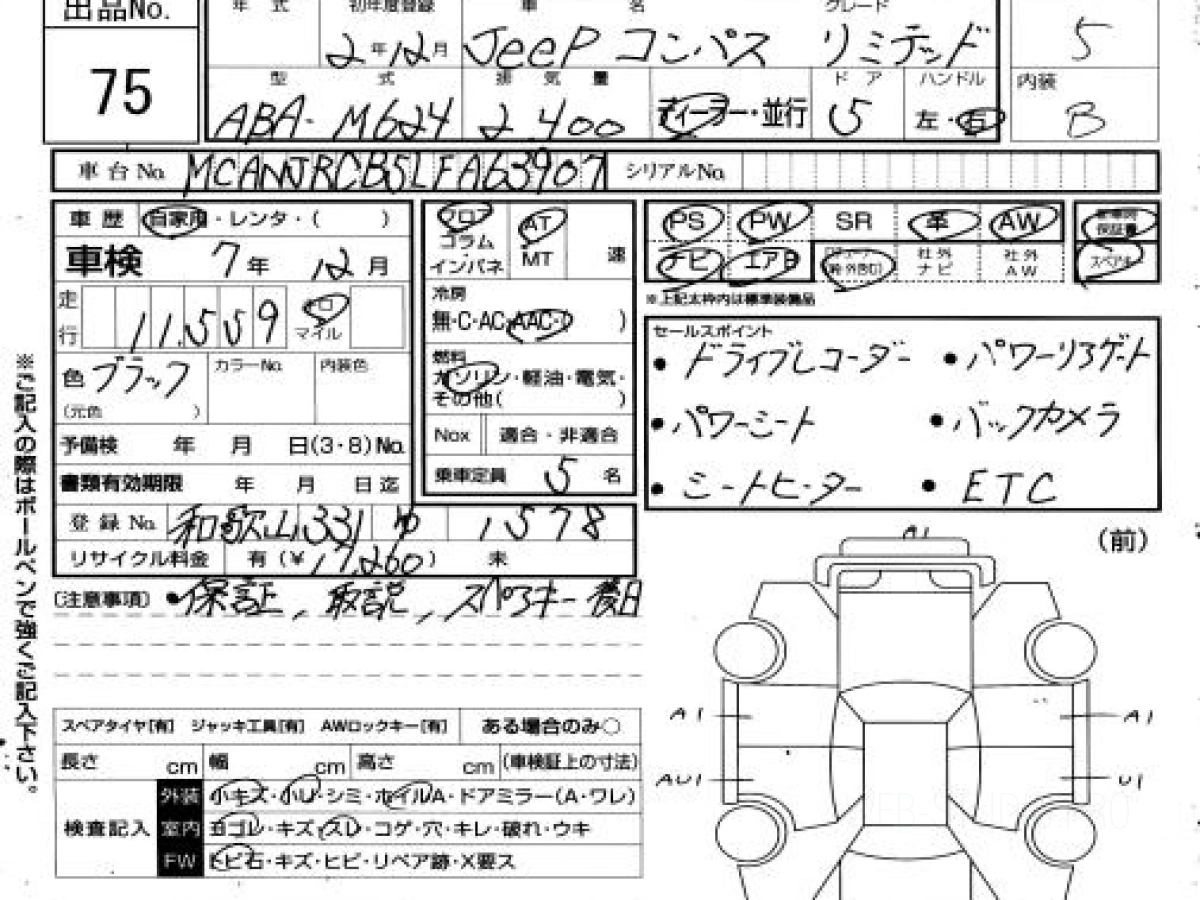 出品No. 年 式 初年度登録 車 名 グレード
75 2年12月 Jeep コンパス リミテッド 5
型 式 排 気 量 ドア ハンドル 内装
ABA- M624 2,400 ディーラー・並行 5 左・右 B
車台No. MCANJRCB5LFA63907 シリアルNo.
車歴 自家用・レンタ・( ) フロア AT PS PW SR 革 AW 新車時保証書
コラム
インパネ MT 速
車検 7年 12月 ナビ エアB 社外ナビ 社外AW スペアキー
※上記太枠内は標準装備品
走行 11,559 キロ マイル
冷房
無・C・AC・AAC・( )
セールスポイント
• ドライブレコーダー • パワーリアゲート
• パワーシート • バックカメラ
• シートヒーター • ETC
色 ブラック カラーNo. 内装色
(元色 )
燃料
ガソリン・軽油・電気・
その他( )
予備検 年 月 日(3・8)No. Nox 適合・非適合
書類有効期限 年 月 日迄 乗車定員 5 名
登録No. 和歌山 331 ゆ 1578
リサイクル料金 有(¥17,260) 未
(前)
〔注意事項〕 •保証, 取説, スペアキー 後日
※ご記入の際はボールペンで強くご記入下さい。
スペアタイヤ[有] ジャッキ工具[有] AWロックキー[有] ある場合のみ○
長さ cm 幅 cm 高さ cm (車検証上の寸法)
検査記入
外装 小キズ・小U・シミ・ホイルA・ドアミラー(A・ワレ)
室内 ヨゴレ・キズ・スレ・コゲ・穴・キレ・破れ・ウキ
FW トビ石・キズ・ヒビ・リペア跡・X要ス
A1
A1 A1
AU1 U1